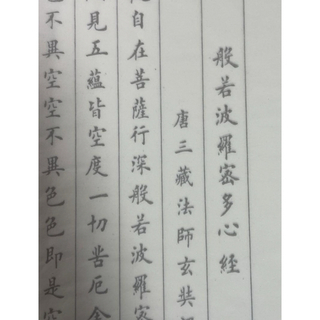 般若波羅密多心經
唐三藏法師玄奘
自在菩薩行深般若波羅密
見五蘊皆空度一切苦厄舍
不異空空不異色色即是空